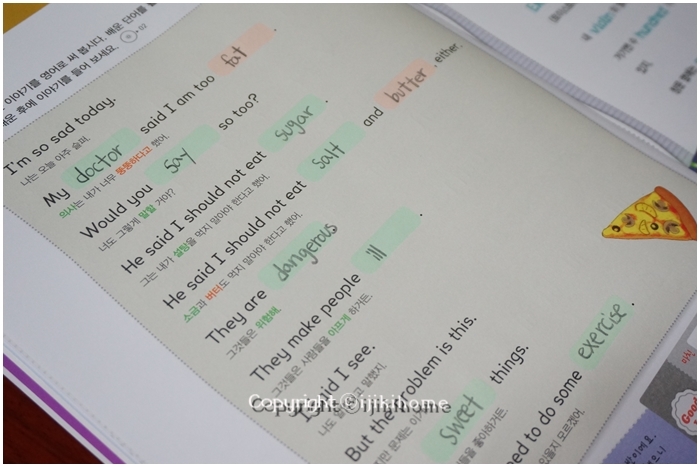 이야기를 영어로 써 봅시다. 배운 단어를
후에 이야기를 들어 보세요. 02
I'm so sad today.
나는 오늘 아주 슬퍼.
My doctor said I am too fat.
의사는 내가 너무 뚱뚱하다고 했어.
Would you say so too?
너도 그렇게 말할 거야?
He said I should not eat sugar.
그는 내가 설탕을 먹지 말아야 한다고 했어.
He said I should not eat salt and butter, either.
소금과 버터도 먹지 말아야 한다고 했어.
They are dangerous.
그것들은 위험해.
They make people ill.
그것들은 사람들을 아프게 하거든.
I said I see.
나도 말했지.
But the problem is this.
문제는
sweet things.
좋아하거든.
to do some exercise.
모르겠어.
Copyright © ijikihome
Good